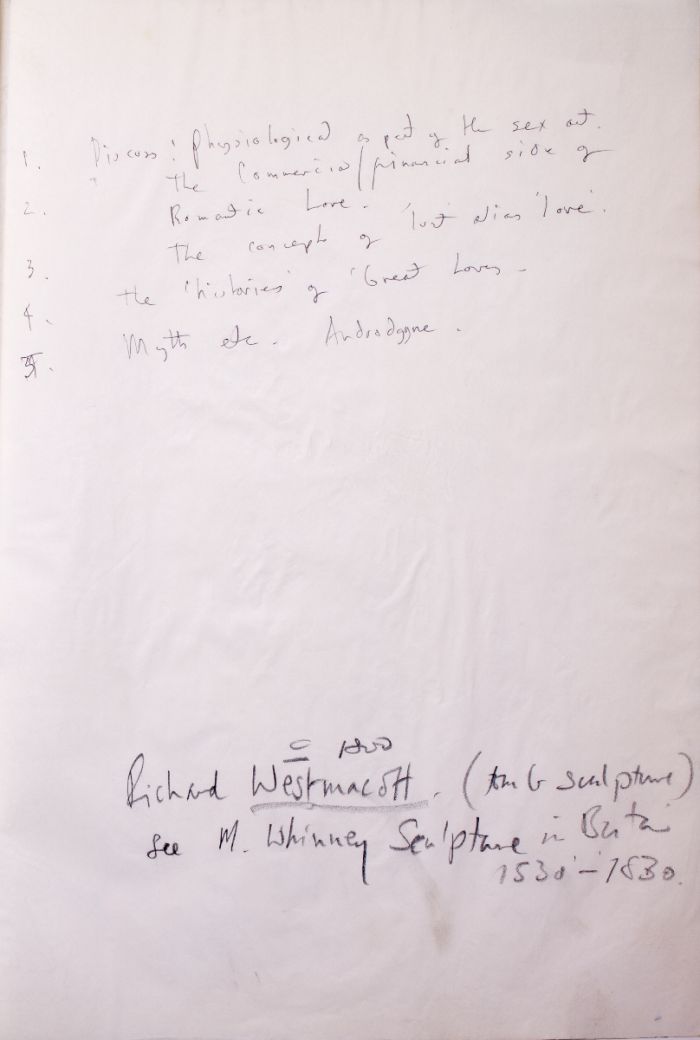 1. Discuss: physiological as part of the sex act.
2. " the Commercial/financial side of
Romantic Love.
3. The concept of 'lust' alias 'love'.
4. the 'histories' of 'Great Loves -
5. Myth etc. Androdgyne.
= 1800
Richard Westmacott. (tomb sculpture)
See M. Whinney Sculpture in Britain
1530 - 1830.